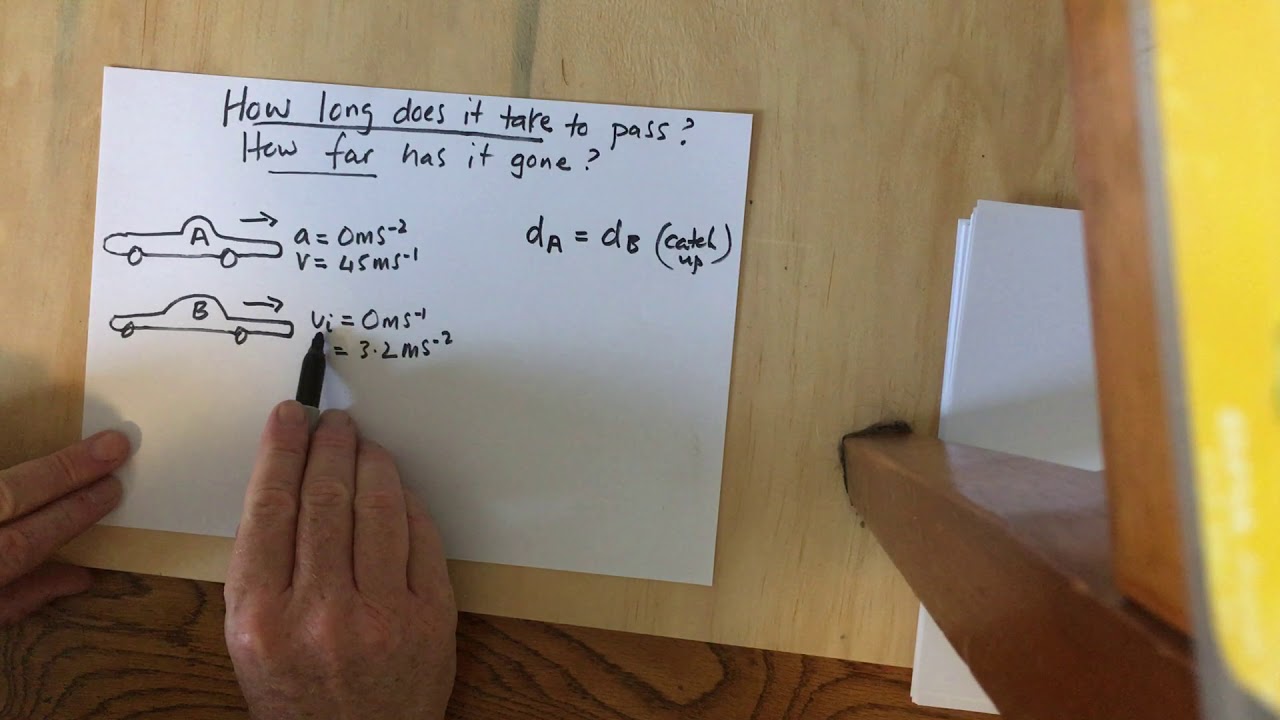 How long does it take to pass?
How far has it gone?
A
a = 0ms⁻²
v = 45ms⁻¹
d_A = d_B (catch up)
B
vᵢ = 0ms⁻¹
= 3.2ms⁻²